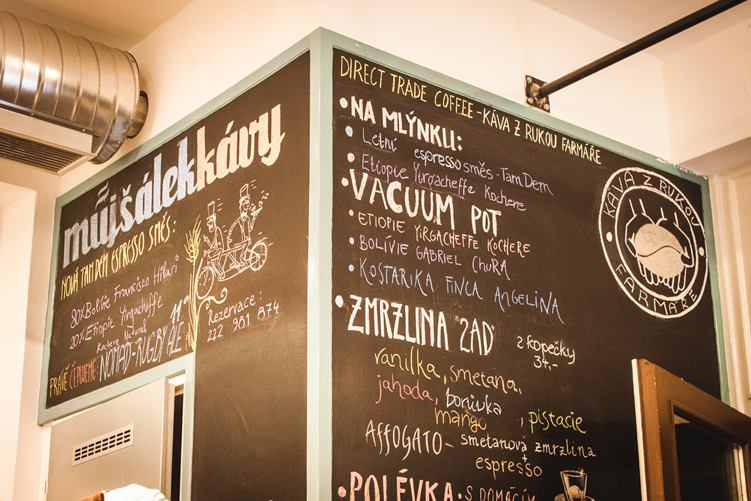 můjšálekkávy
NOVÁ TAMDEM ESPRESSO SMĚS:
80% Bolívie Francisco Hilari
20% Etiopie Yirgacheffe
Kochere Natural
PRÁVĚ ČEPUJEME: NOMÁD-RUGBY ALE 11°
Rezervace:
222 981 874
DIRECT TRADE COFFEE - KÁVA Z RUKOU FARMÁŘE
• NA MLÝNKU:
• Letní espresso směs - TamDem
• Etiopie Yirgacheffe Kochere
• VACUUM POT
• ETIOPIE YIRGACHEFFE KOCHERE
• BOLÍVIE GABRIEL CHURA
• KOSTARIKA FINCA ANGELINA
• ZMRZLINA "2AD" 2 kopečky
34,-
vanilka, smetana,
jahoda, borůvka
mango, pistacie
AFFOGATO - smetanová zmrzlina
+
espresso
• POLÉVKA • S DOMÁCÍM
KÁVA Z RUKOU
FARMÁŘE